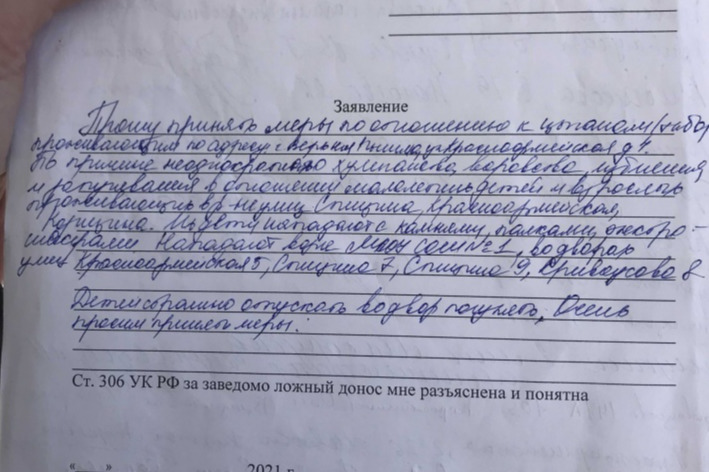 Заявление
Прошу принять меры по отношению к цыганам (табор
проживающим по адресу г. Красноармейская д
По причине неоднократно воровства, избиения
и в отношении малолетних детей и взрослых
проживающих в р-не улиц Спицына, Красноармейская,
Их дети нападают с камнями, палками,
Нападают возле СОШ №1, во дворах
улиц Красноармейская 5, Спицына 7, Спицына 9, Кривоусова 8
Детей страшно отпускать во двор погулять. Очень
просим принять меры.
Ст. 306 УК РФ за заведомо ложный донос мне разъяснена и понятна
"___" 2021 г.